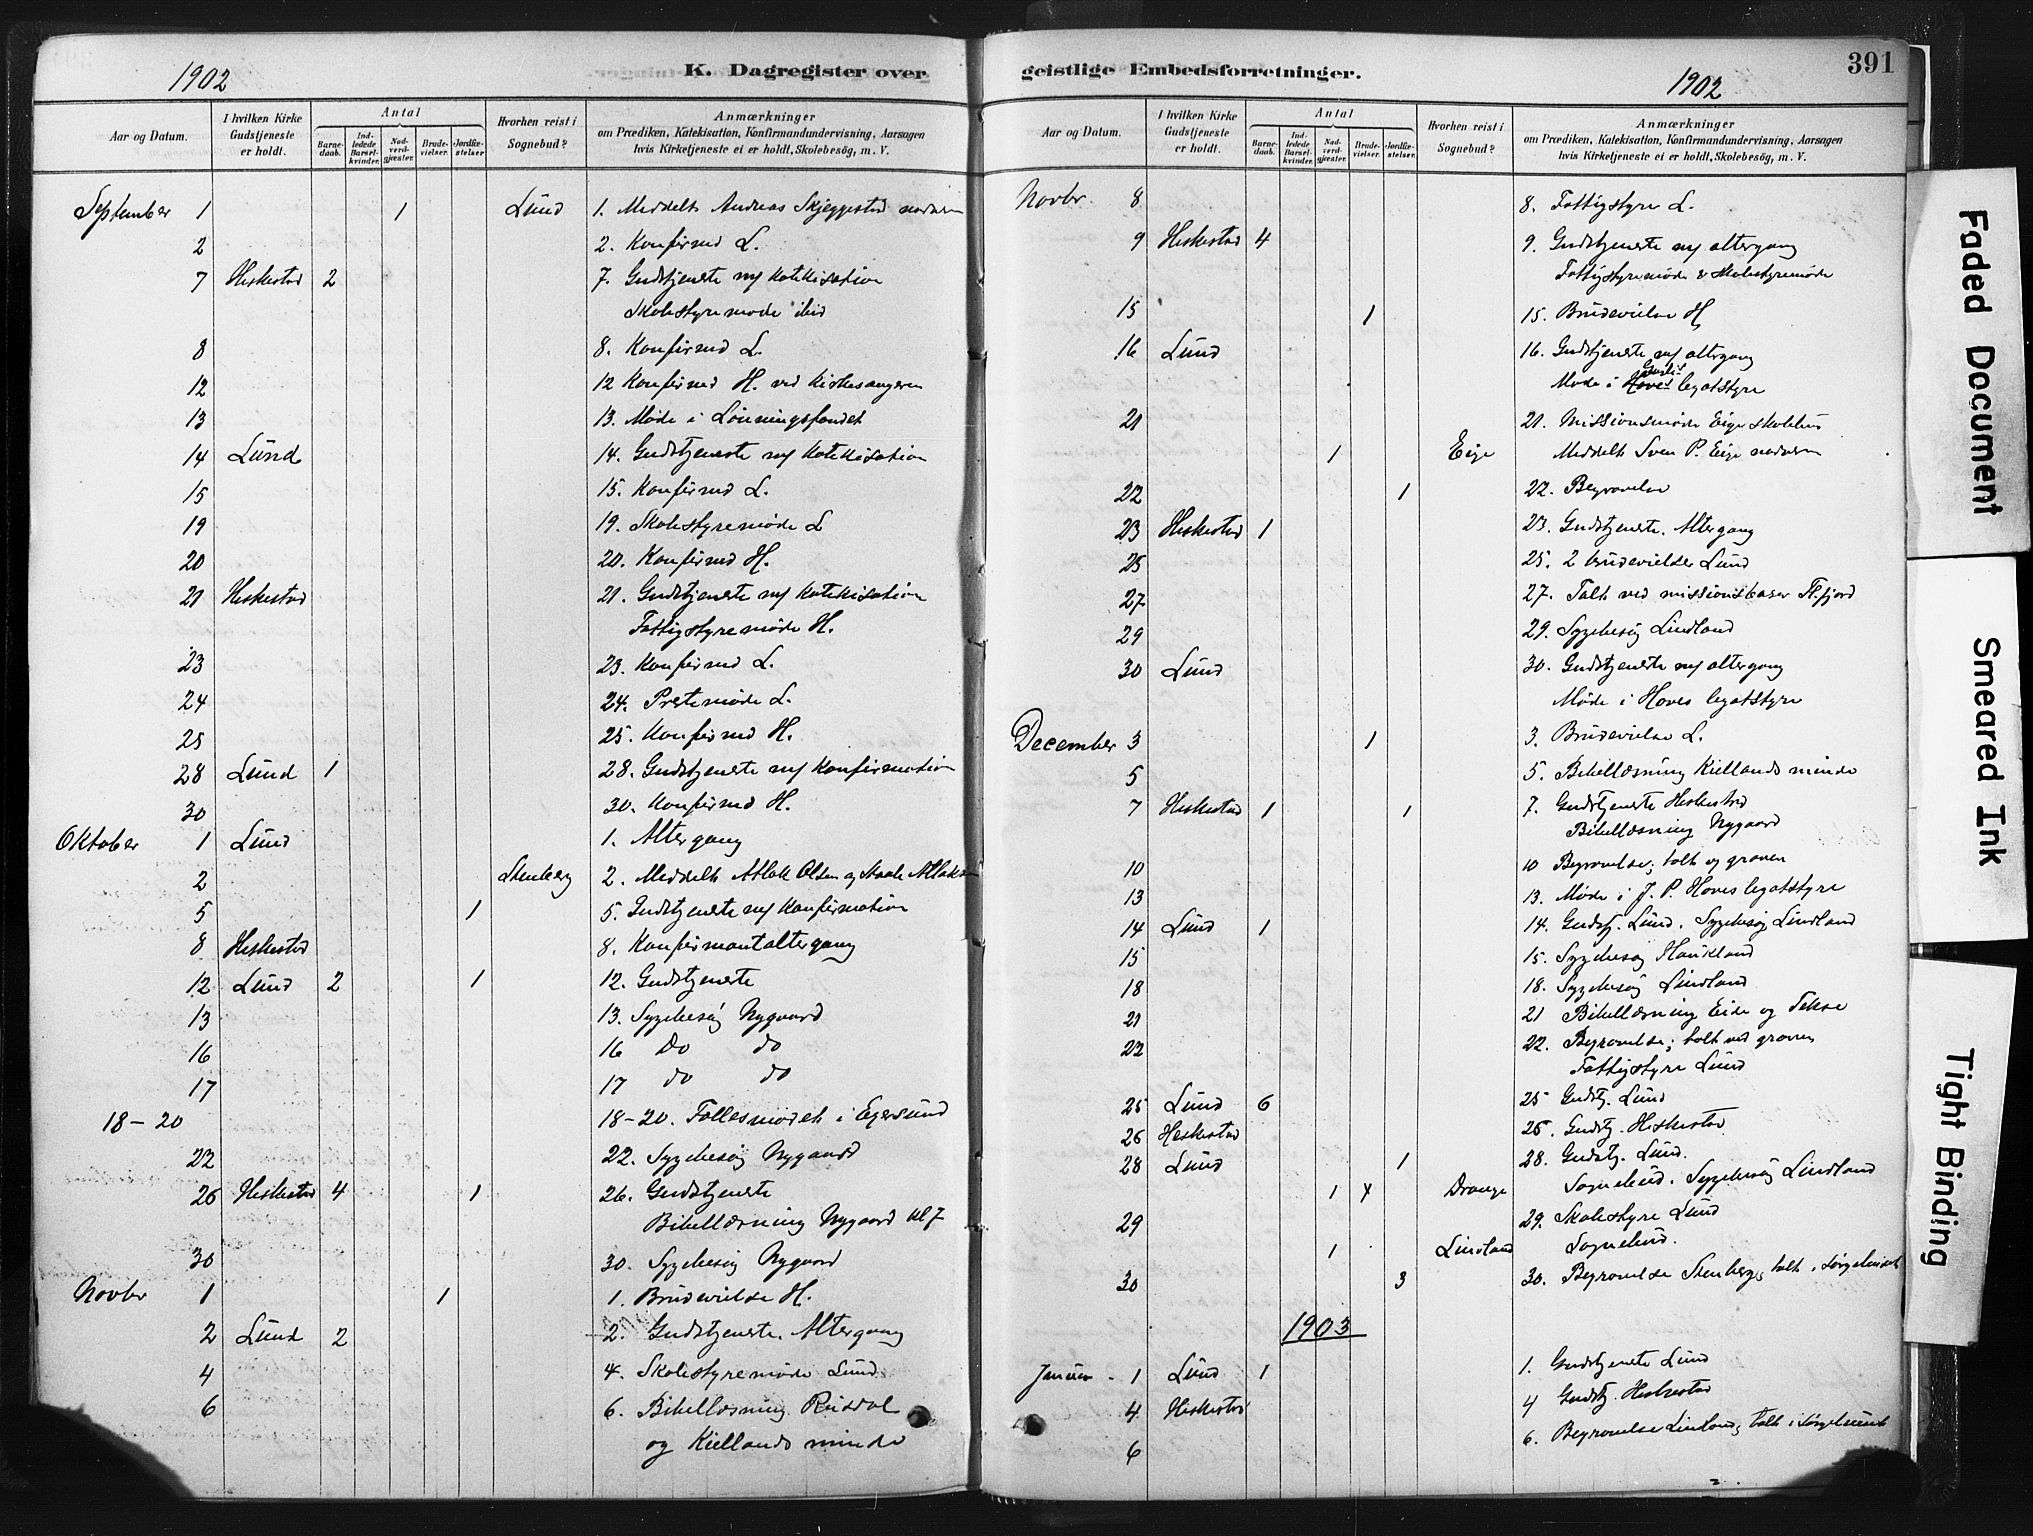 1902
K. Dagregister over
Aar og Datum.
I hvilken Kirke Gudstjeneste er holdt.
Antal
Barnedaab.
Indledede Barselkvinder.
Nadverdgjæster.
Brudevielser.
Jordfæstelser.
Hvorhen reist i Sognebud?
Anmærkninger
om Prædiken, Katekisation, Konfirmandundervisning, Aarsagen
hvis Kirketjeneste ei er holdt, Skolebesög, m. V.
September 1 1 Lund 1. Meddelt Andreas Skjeggestad nadveren
2 2. Konfirmd L.
7 Heskestad 2 7. Gudstjeneste m/ katekisation
Skolestyremøde ibid
8 8. Konfirmd L.
12 12 Konfirmd H. ved kirkesangeren
13 13. Møde i Lønningsfondet
14 Lund 14. Gudstjeneste m/ katekisation
15 15. Konfirmd L.
19 19. Skolestyremøde L
20 20. Konfirmd H.
21 Heskestad 21. Gudstjeneste m/ katekisation
Fattigstyremøde H.
23 23. Konfirmd L.
24 24. Prestemøde L.
25 25. Konfirmd H.
28 Lund 1 28. Gudstjeneste m/ konfirmation
30 30. Konfirmd H.
Oktober 1 Lund 1. Altergang
2 Stenberg 2. Meddelt Atlak Olsen og
5 1 5. Gudstjeneste m/ konfirmation
8 Heskestad 8. Konfirmantaltergang
12 Lund 2 1 12. Gudstjeneste
13 13. Sygebesøg Nygaard
16 16 Do do
17 17 do do
18-20 18-20. Fællesmødet i Egersund
22 22. Sygebesøg Nygaard
26 Heskestad 4 1 26. Gudstjeneste
Bibellæsning Nygaard kl 7
30 30. Sygebesøg Nygaard
Novbr 1 1 1. Brudevielse H.
2 Lund 2 2. Gudstjeneste. Altergang
4 4. Skolestyremøde Lund
6 6. Bibellæsning Rusdal
og Kiellands minde
geistlige Embedsforretninger.
1902
391
Aar og Datum.
I hvilken Kirke Gudstjeneste er holdt.
Antal
Barnedaab.
Indledede Barselkvinder.
Nadverdgjæster.
Brudevielser.
Jordfæstelser.
Hvorhen reist i Sognebud?
Anmærkninger
om Prædiken, Katekisation, Konfirmandundervisning, Aarsagen
hvis Kirketjeneste ei er holdt, Skolebesög, m. V.
Novbr 8 8. Fattigstyre L.
9 Heskestad 4 9. Gudstjeneste m/ altergang
Fattigstyremøde & skolestyremøde
15 1 15. Brudevielse H
16 Lund 16. Gudstjeneste m/ altergang
Møde i Hoves legatstyre
21 21. Missionsmøde Eige skolehus
1 Eige Meddelt Sven P. Eige nadveren
22 1 22. Begravelse
23 Heskestad 1 23. Gudstjeneste. Altergang
25 25. 2 brudevielser Lund
27 27. Talt ved missionsbasar Fl.fjord
29 29. Sygebesøg Lindland
30 Lund 30. Gudstjeneste m/ altergang
Møde i Hoves legatstyre
December 3 1 3. Brudevielse L.
5 5. Bibellæsning Kiellands minde
7 Heskestad 1 1 7. Gudstjeneste Heskestad
Bibellæsning Nygaard
10 10 Begravelse; talt og graven
13 13. Møde i J. P. Hoves legatstyre
14 Lund 1 14. Gudstj. Lund. Sygebesøg Lindland
15 15. Sygebesøg Haukland
18 18. Sygebesøg Lindland
21 21 Bibellæsning Eide og Tekse
22 22. Begravelse; talt ved graven
Fattigstyre Lund
25 Lund 6 25 Gudstj. Lund
26 Heskestad 26. Gudstj. Heskestad
28 Lund 1 28. Gudstj. Lund.
1 Drange Sognebud. Sygebesøg Lindland
29 29. Skolestyre Lund
1 Lindland Sognebud.
30 3 30. Begravelse Stenberg, talt i sørgehuset
1903
Januar 1 Lund 1 1. Gudstjeneste Lund
4 Heskestad 4 Gudstj. Heskestad
6 6. Begravelse Lindland, talt i sørgehuset
Faded Document
Smeared Ink
Tight Binding